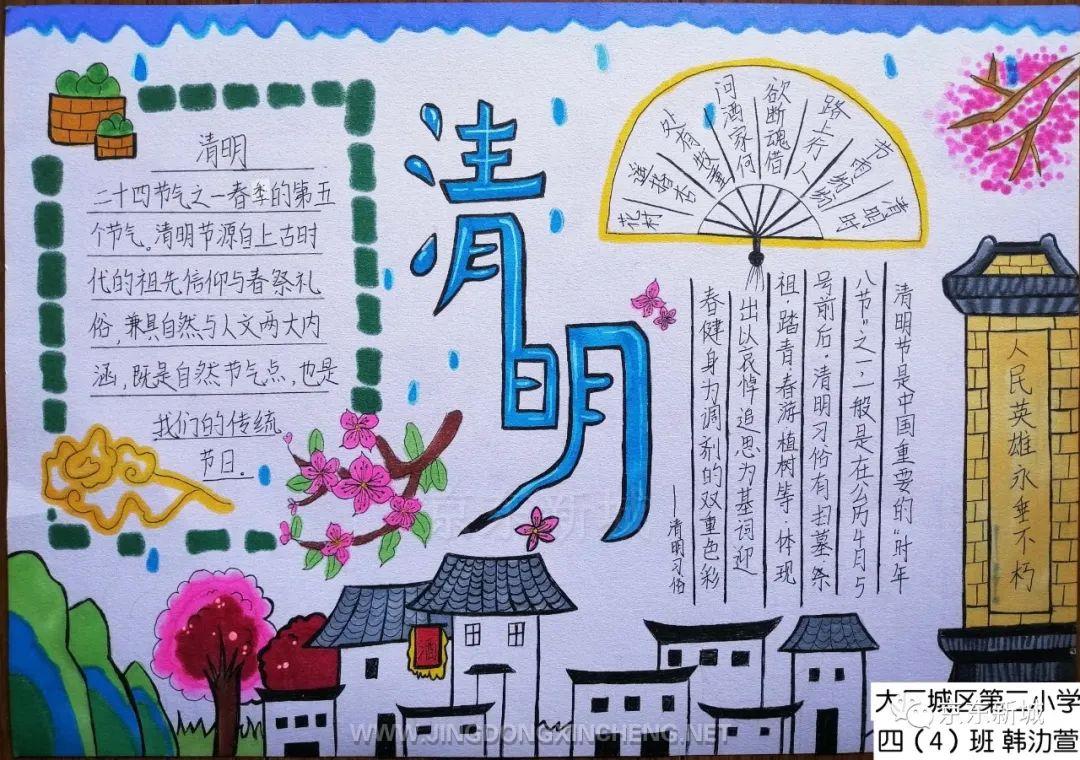 清明
二十四节气之一春季的第五
个节气。清明节源自上古时
代的祖先信仰与春祭礼
俗，兼具自然与人文两大内
涵，既是自然节气点，也是
我们的传统
节日.
清明
清明时
节雨纷纷
路上行人
欲断魂借
问酒家何
处有牧童
遥指杏
花村
清明节是中国重要的“时年
八节”之一，一般是在公历4月5
号前后.清明习俗有扫墓祭
祖.踏青春游.植树等.体现
出以哀悼追思为基词迎
春健身为调剂的双重色彩
——清明习俗
人民英雄永垂不朽
酒
京东新城
城区第小学
四（4）班
WWW.JINGDONGXINCHENG.NET